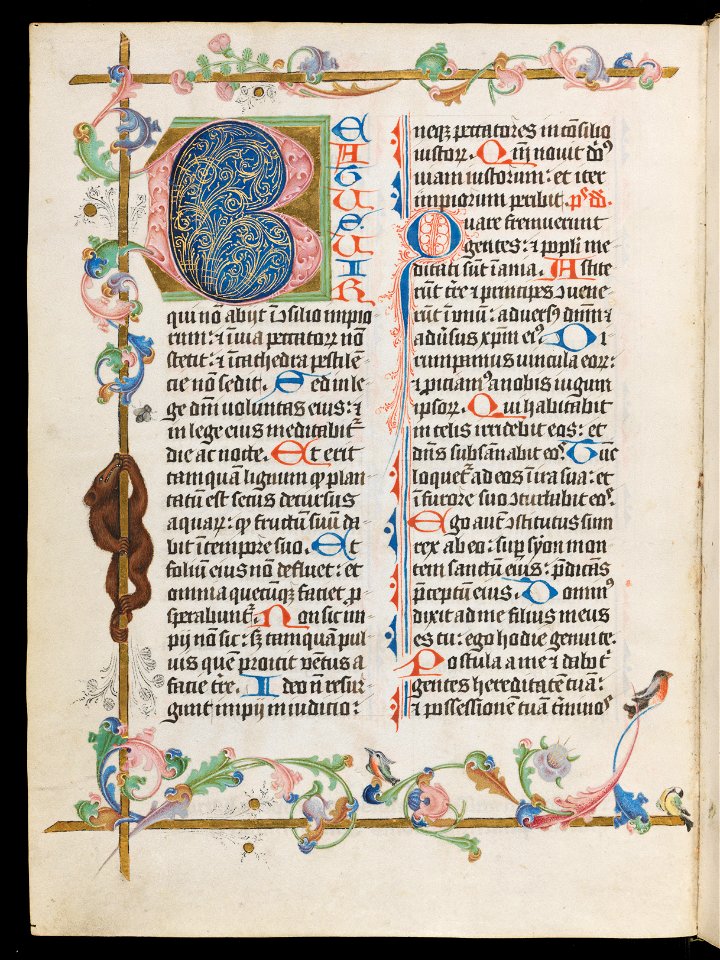 B
E
A
T
U
S
U
I
R
qui nō abijt ī ɔsilio impio
rum: ⁊ ī uia peccatorꝝ nō
stetit: ⁊ ī cathedra pestilē
cie nō sedit. Sed in le
ge dñi uoluntas eius: ⁊
in lege eius meditabit᷑
die ac nocte. Et erit
tamquam lignum qꝫ plan
tatū est secus decursus
aquarꝝ: qꝫ fructū suū da
bit ī tempore suo. Et
foliū eius nō defluet: et
omnia quecūqꝫ faciet ꝓ
sperabunt᷑. Non sic im
pij nō sic: sꝫ tamquā pul
uis quē proicit uētus a
facie t̄re. Ideo n̄ resur
gunt impij in iudicio:
neqꝫ peccatores in cōsilio
iustorꝝ. Qm̄ nouit dn̄s
uiam iustorum: et iter
impiorum peribit. ps dd.
Quare fremuerunt
gentes: ⁊ ppli me
ditati sūt īania. Astite
rūt t̄re ⁊ principes ɔuene
rūt ī unū: aduersꝰ dnm ⁊
adūsus xp̄m eiꝰ. Di
rumpamus uincula eorꝝ:
⁊ ꝓiciamꝰ a nobis iugum
ipsorꝝ. Qui habitabit
in celis irridebit eos: et
dn̄s subsānabit eoꝰ. Tūc
loquet᷑ ad eos ī ira sua: et
ī furore suo ɔturbabit eoꝰ.
Ego aut̄ ɔstitutus sum
rex ab eo: suꝑ syon mon
tem sanctū eius: p̄dicās
p̄ceptū eius. Dominꝰ
dixit ad me filius meus
es tu: ego hodie genui te.
Postula a me ⁊ dabo t̄
gentes hereditatē tuā:
⁊ possessionē tuā t̄minoꝰ